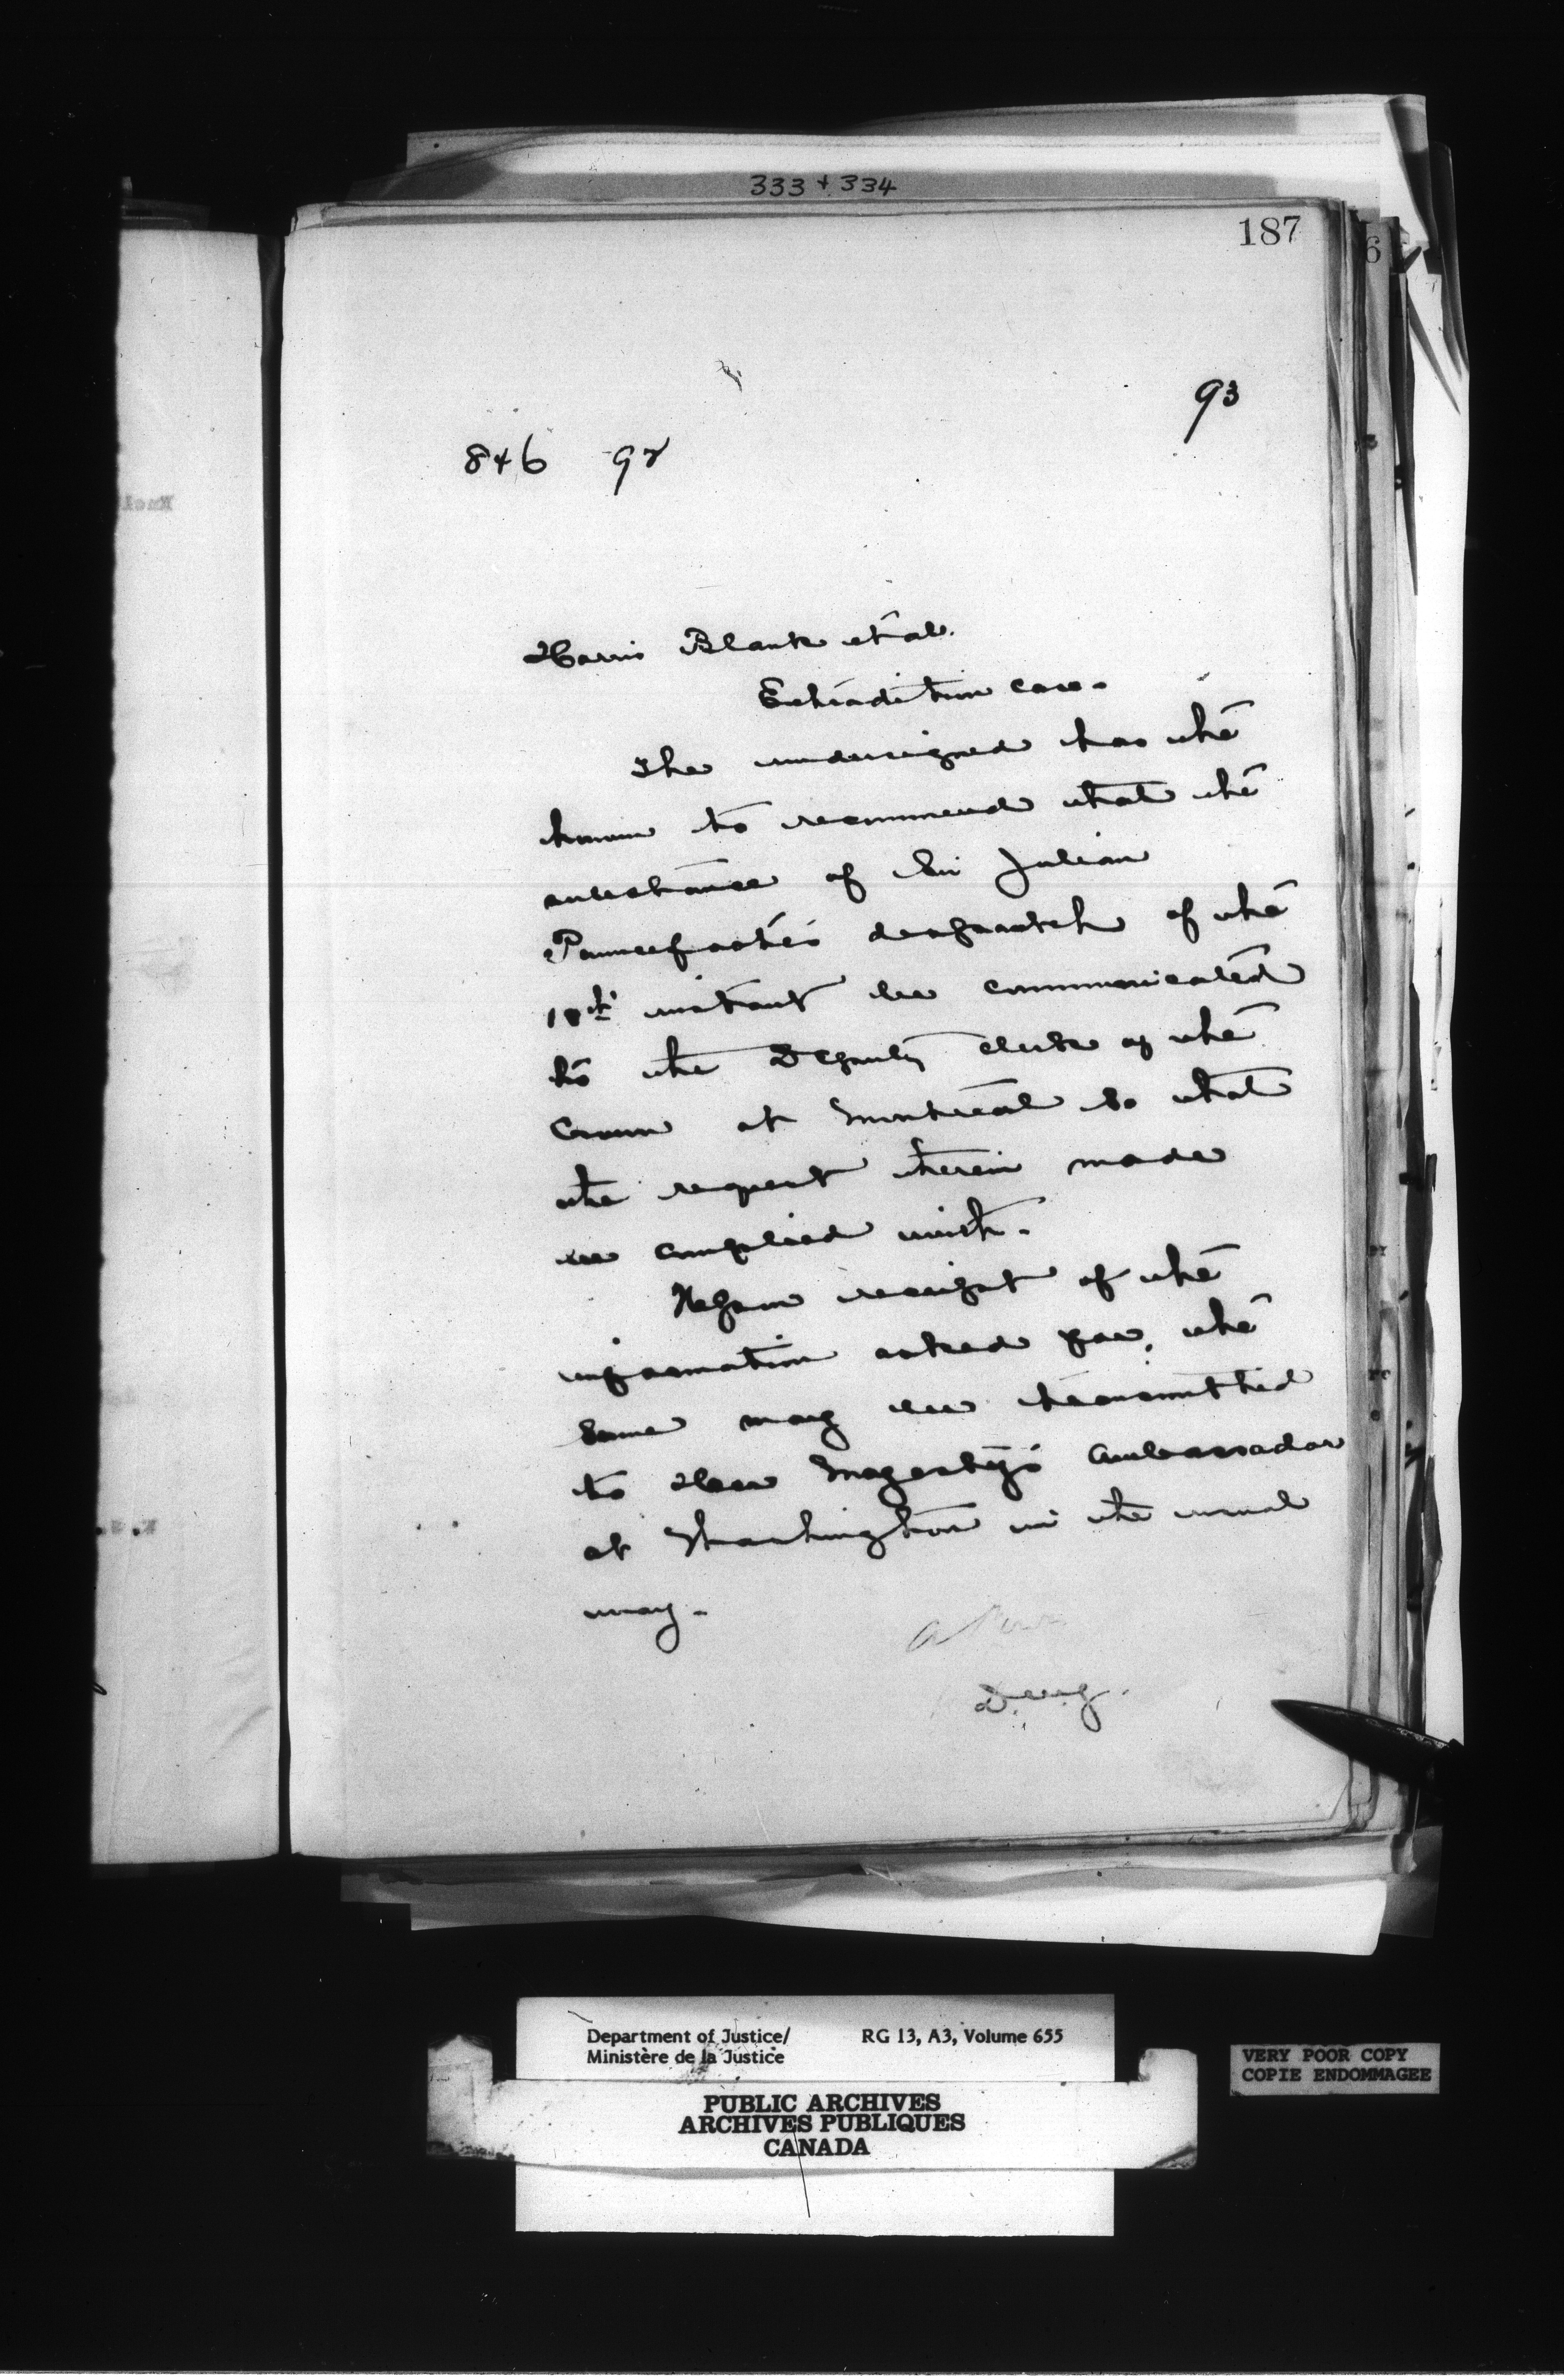 333 + 334
187
6
93
846 92
Harris Blank et al.
Extradition case.
The undersigned has the
honour to recommend that the
substance of Sir Julian
Pauncefote's despatch of the
18th instant be communicated
to the Deputy Clerk of the
Crown at Montreal so that
the request therein made
be complied with.
Upon receipt of the
information asked for, the
same may be transmitted
to Her Majesty's Ambassador
at Washington in the usual
way.
Department of Justice/ RG 13, A3, Volume 655
Ministère de la Justice
PUBLIC ARCHIVES
ARCHIVES PUBLIQUES
CANADA
VERY POOR COPY
COPIE ENDOMMAGEE